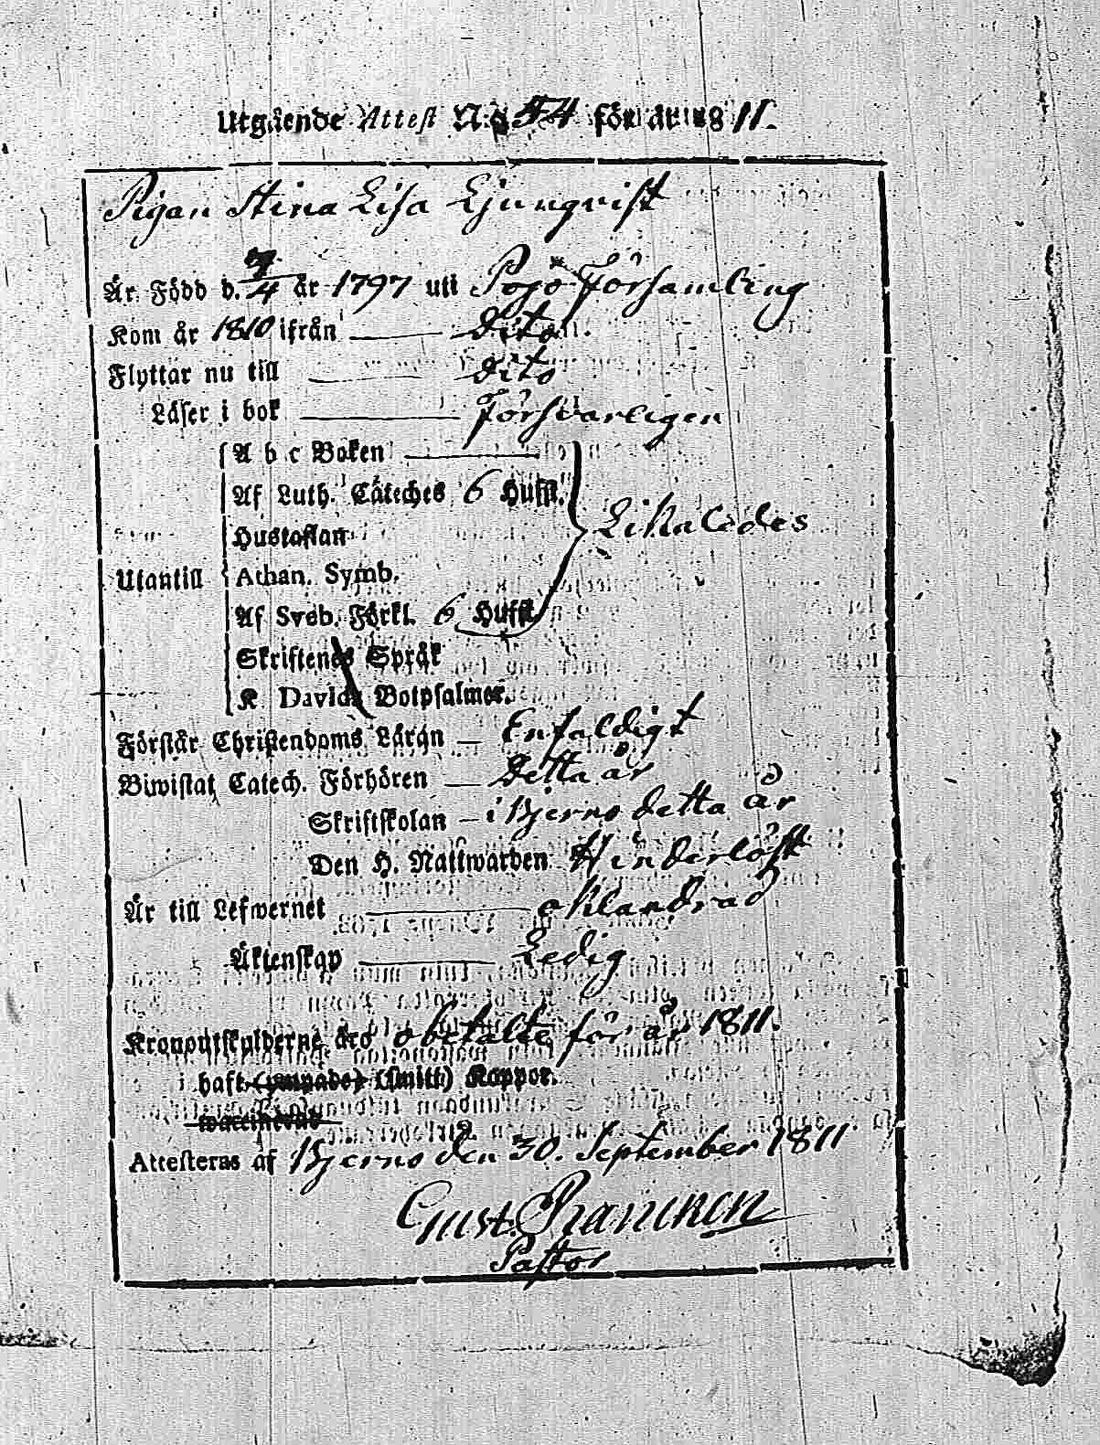 Utgående Attest N:o 54 för år 1811.
Pigan Stina Lisa Ljungqvist
Är Född d. 7/4 år 1797 uti Pojo Församling
Kom år 1810 ifrån Dito
Flyttar nu till Dito
Läser i bok Försvarligen
A b c Boken
Af Luth. Cateches 6 Hufst.
Hustaflan Likaledes
Utantill Athan. Symb.
Af Sveb. Förkl. 6 Hufst.
Skriftenes Språk
K. Davids Botpsalmer.
Förstår Christendoms Läran Enfaldigt
Biwistat Catech. Förhören Detta år
Skriftskolan i Bjerno detta år
Den H. Nattwarden Hinderlöst
Är till Lefwernet oklandrad
Äktenskap Ledig
Kronoutskylderne äro obetalte för år 1811.
haft (ympade) (smitt) Koppor.
Attesteras af Bjerno den 30. September 1811
Gust. Rancken
Pastor